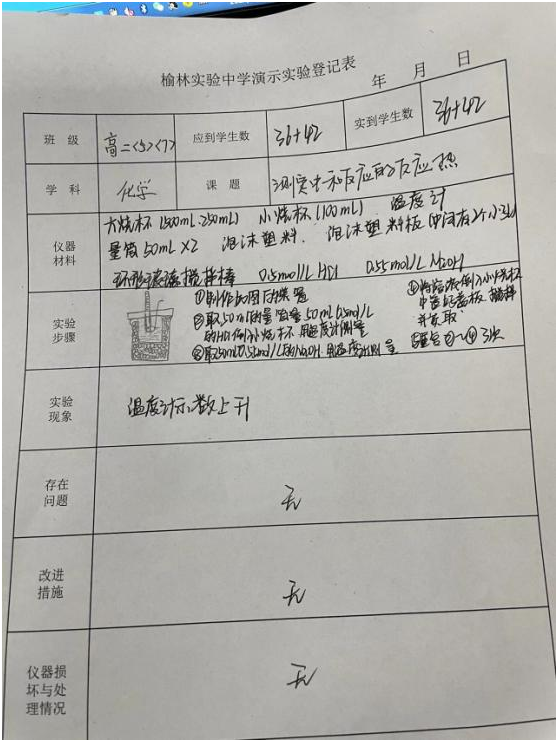 榆林实验中学演示实验登记表
年 月 日
班 级 高二<5><7> 应到学生数 36+42 实到学生数 36+42
学 科 化学 课 题 测定中和反应的反应热
仪器材料
大烧杯(500mL-250mL) 小烧杯(100mL) 温度计
量筒50mL×2 泡沫塑料. 泡沫塑料板(中间有2个小孔)
环形玻璃搅拌棒 0.5mol/L HCl 0.55mol/L NaOH
实验步骤
①制作如图的装置
②取50mL的量筒量50mL 0.5mol/L
的HCl倒入小烧杯 用温度计测量
③取50mL 0.55mol/L的NaOH 用温度计测量
④
倒入小烧杯
中 盖板 搅拌
并读取
⑤重复②~④ 3次
实验现象
温度计示数上升
存在问题
无
改进措施
无
仪器损坏与处理情况
无